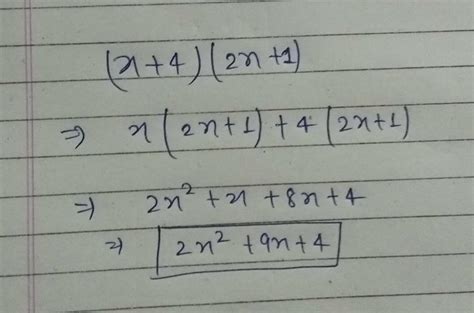 (x+4)(2x+1)
⇒ x(2x+1)+4(2x+1)
⇒ 2x²+x+8x+4
⇒ 2x²+9x+4